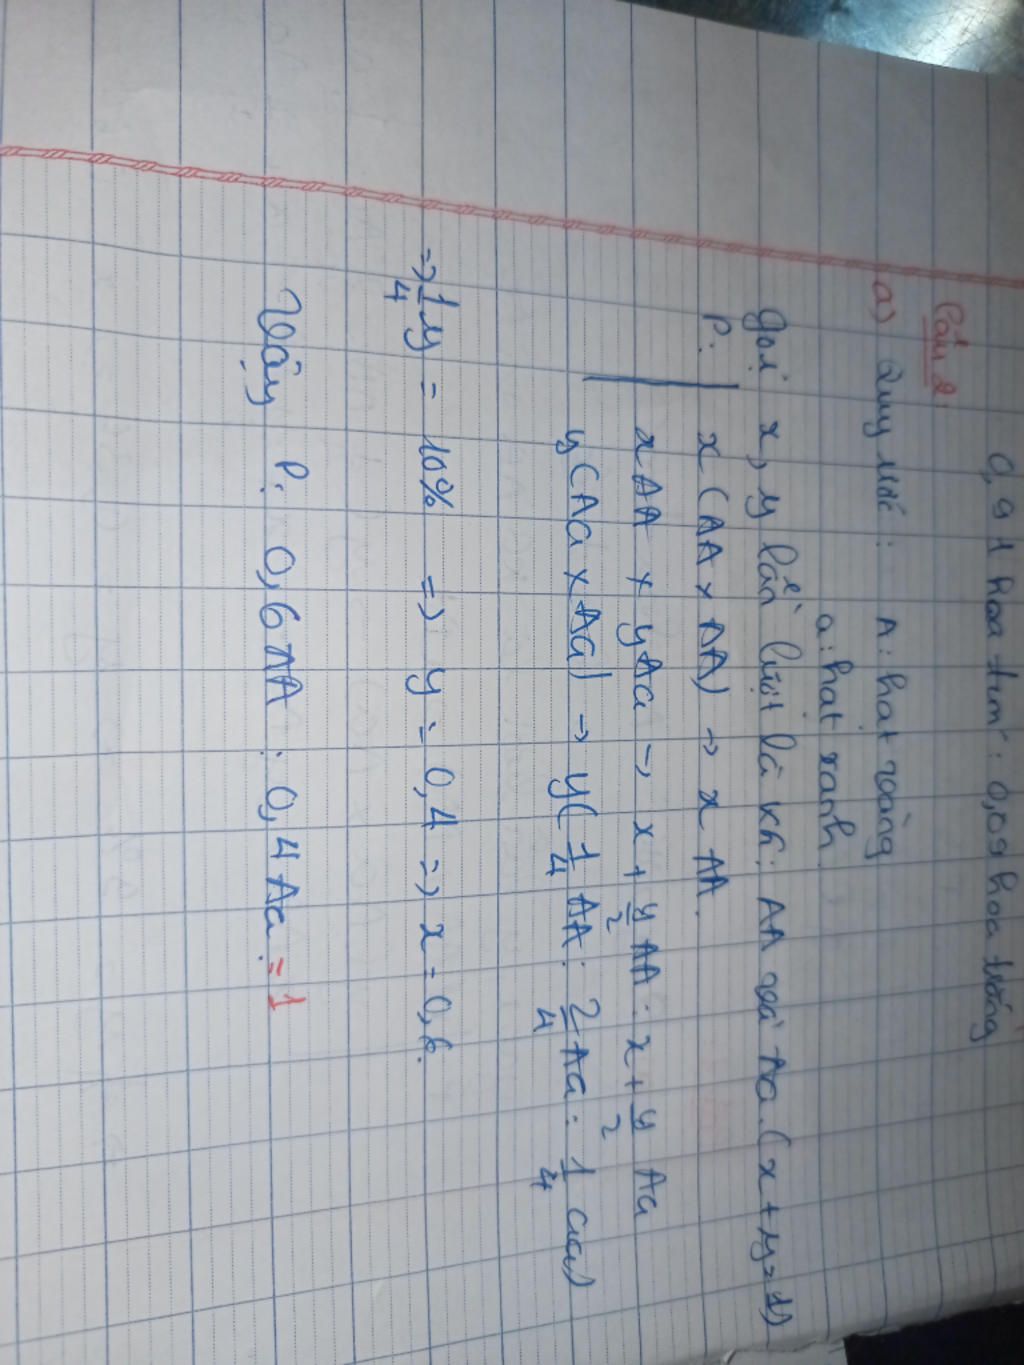 0,91 hoa tím : 0,09 hoa trắng
Câu 2:
a) Quy ước : A : hạt vàng
a : hạt xanh
Gọi x, y lần lượt là KG: AA và Aa. (x+y=1)
P: x (AA x AA) → x AA.
x AA x y Aa → x + y/2 AA : x + y/2 Aa
y (Aa x Aa) → y (1/4 AA : 2/4 Aa : 1/4 aa)
=> 1/4 y = 10% => y = 0,4 => x = 0,6.
Vậy P: 0,6 AA : 0,4 Aa = 1